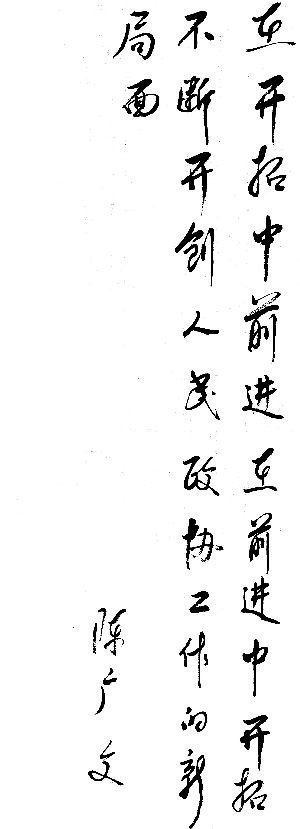 在开拓中前进在前进中开拓
不断开创人民政协工作的新
局面
陈广文